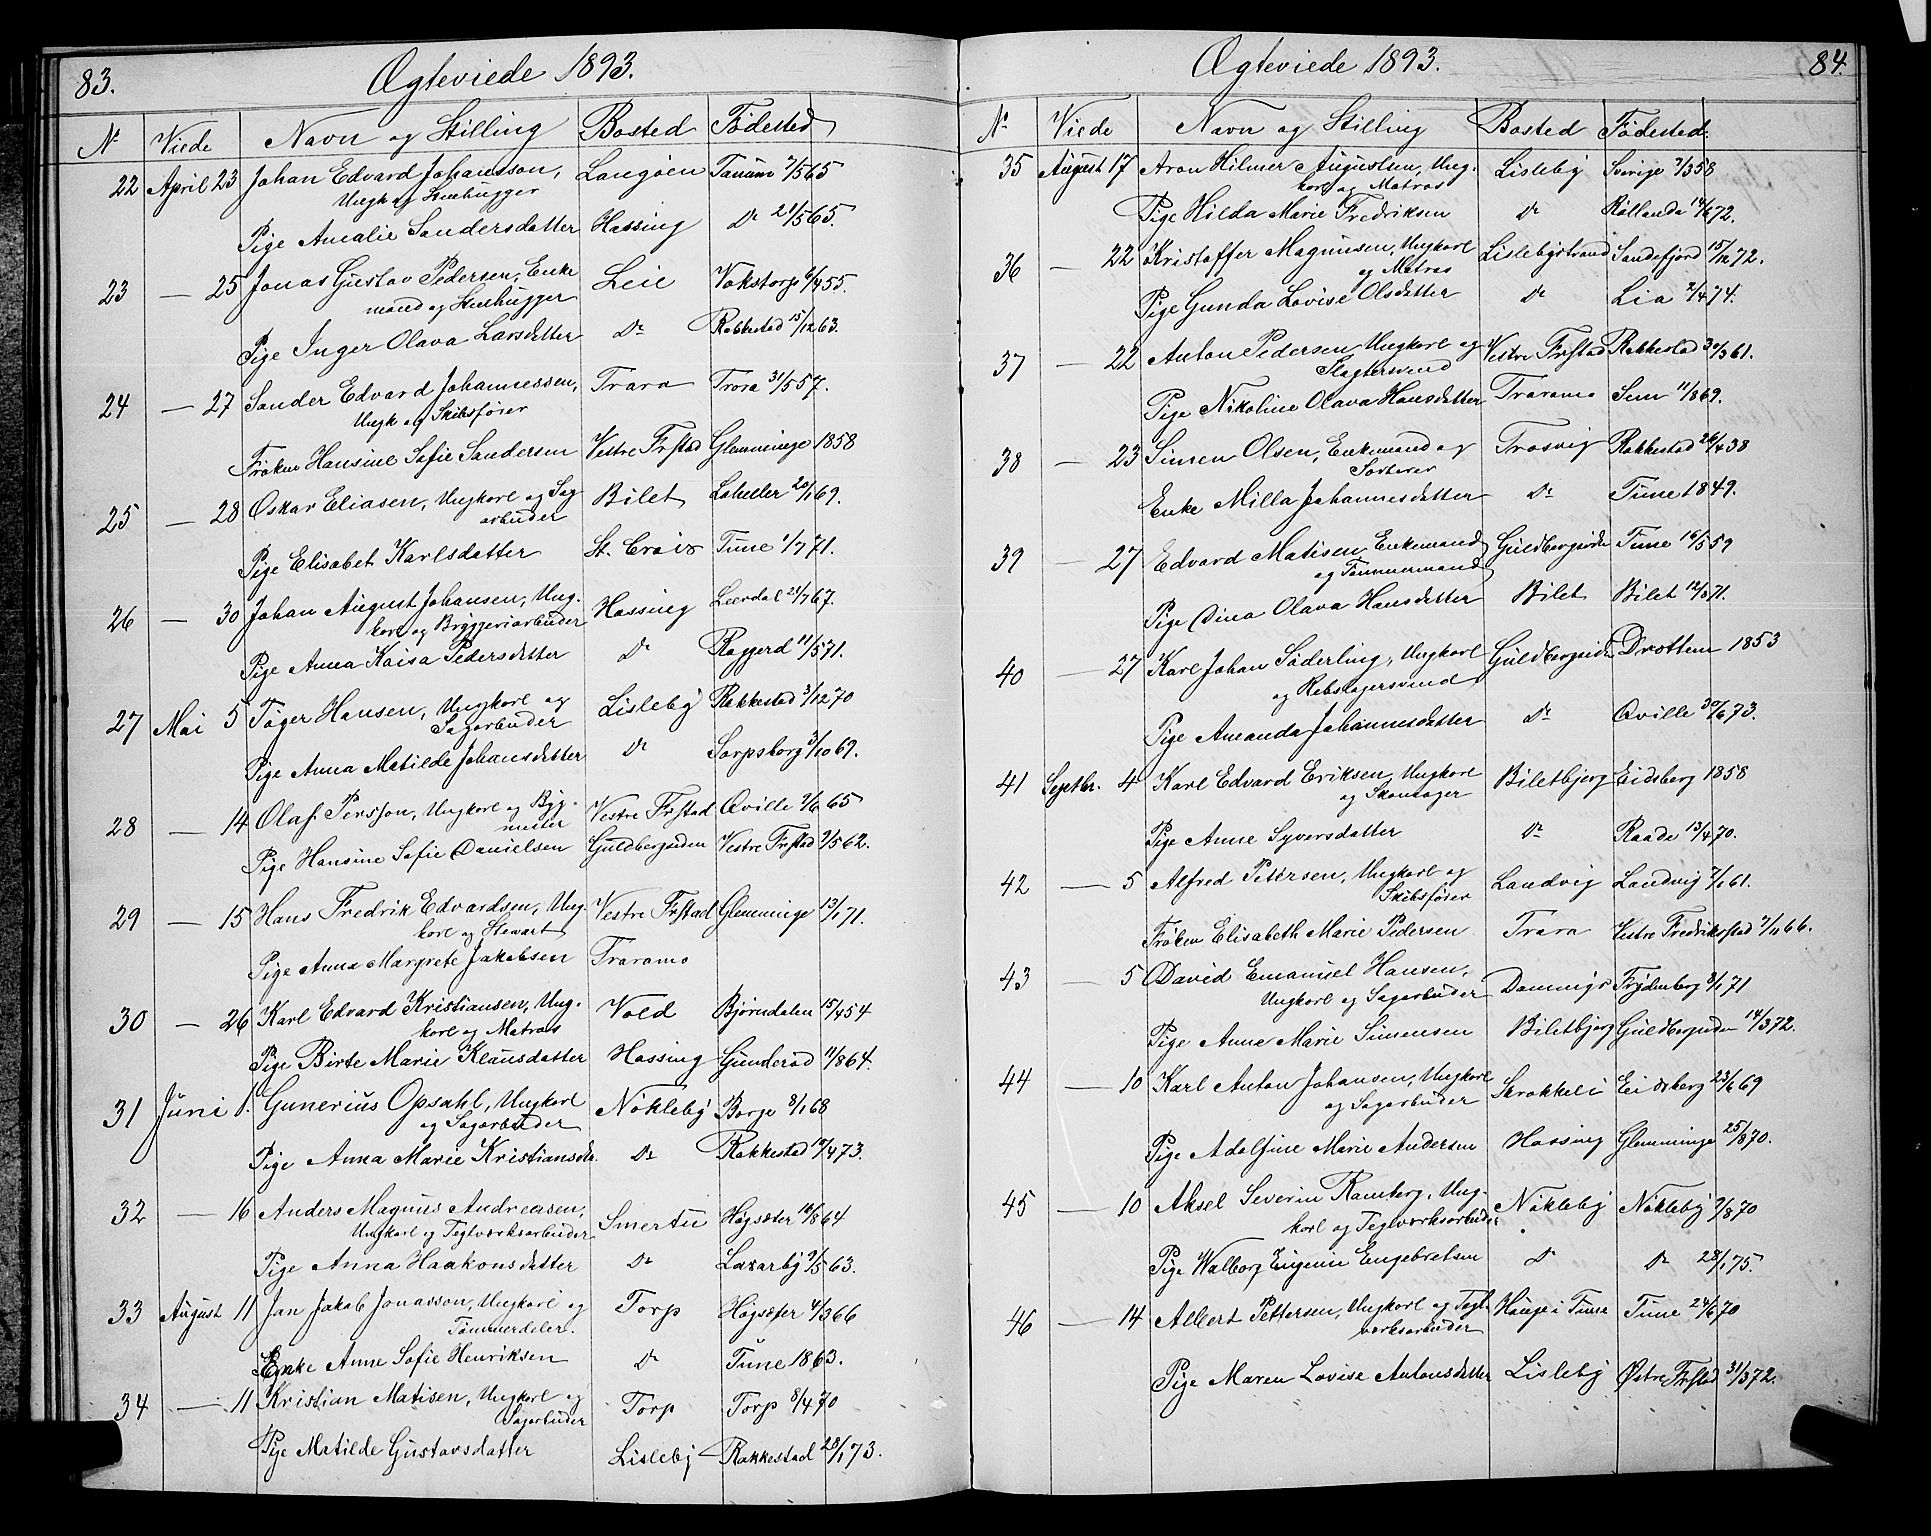 83. Ægteviede 1893.
Nº Viede Navn og Stilling Bosted Fødested
22 April 23 Johan Edvard Johansson, Langøen Tanum 7/5 65
Ungk og Stenhugger
Pige Amalie Sandersdatter Hassing Do 21/5 65.
23 — 25 Jonas Gustav Pedersen, Enke Leie Vokstorp 6/4 55.
mand og Stenhugger
Pige Inger Olava Larsdatter Do Rakkestad 15/12 63.
24 — 27 Sander Edvard Johannessen, Trara Trara 31/5 57.
Ungk og Skibsfører
Frøken Hansine Sofie Sandersen Vestre Frstad Glemminge 1858
25 — 28 Oskar Eliasen, Ungkarl og Sag Bilet Laheller 20/1 69.
arbuder
Pige Elisabet Karlsdatter St. Croix Tune 1/7 71.
26 — 30 Johan August Johansen, Ung- Hassing Leerdal 21/7 67.
karl og Bryggeriarbuder
Pige Anna Kaisa Pedersdatter Do Raggerd 11/5 71.
27 Mai 5 Tøger Hansen, Ungkarl og Lisleby Rakkestad 3/12 70
Sagarbuder
Pige Anna Matilde Johansdatter Do Sarpsborg 3/10 69.
28 — 14 Olaf Persson, Ungkarl og Byg- Vestre Frstad Qville 9/6 65
mester
Pige Hansine Sofie Danielsen Guldbergsiden Vestre Frstad 9/5 62.
29 — 15 Hans Fredrik Edvardsen, Ung- Vestre Frstad Glemminge 13/1 71.
karl og Stewart
Pige Anna Margrete Jakobsen Traramo
30 — 26 Karl Edvard Kristiansen, Ung- Vold Bjørndalen 15/4 54
karl og Matros
Pige Birte Marie Klausdatter Hassing Gunderød 11/8 64.
31 Juni 1. Gunerius Opsahl, Ungkarl Nøkleby Borge 8/1 68
og Sagarbuder
Pige Anna Marie Kristiansdtr. Do Rakkestad 19/4 73.
32 — 16 Anders Magnus Andreasen, Smertu Högsæter 10/8 64
Ungkarl og Teglværksarbuder
Pige Anna Haakonsdatter Do Laxarby 9/5 63.
33 August 11 Jan Jakob Jonasson, Ungkarl og Torp Högsæter 4/3 66
Tømmerdeler.
Enke Anne Sofie Henriksen Do Tune 1863.
34 — 11 Kristian Matisen, Ungkarl og Torp Torp 8/4 70
Sagarbuder
Pige Matilde Gustavsdatter Lisleby Rakkestad 28/1 73.
Ægteviede 1893. 84.
Nº Viede Navn og Stilling Bosted Fødested
35 August 17 Aron Hilmer Augustsen, Ung- Lisleby Sverige 7/3 58
karl og Matros
Pige Hilda Marie Fredriksen Do Rölanda 14/6 72.
36 — 22 Kristoffer Magnusen, Ungkarl Lislebystrand Sandefjord 15/12 72.
og Matros
Pige Gunda Lovise Olsdatter Do Lia 2/4 74.
37 — 22 Anton Pedersen Ungkarl og Vestre Frstad Rakkestad 30/3 61.
Slagtersvend
Pige Nikoline Olava Hansdatter Traramo Sem 11/8 69.
38 — 23 Simen Olsen, Enkemand og Trosvig Rakkestad 26/4 38
Sorterer
Enke Milla Johannesdatter Do Tune 1849.
39 — 27 Edvard Matisen, Enkemand Guldbergsiden Tune 16/5 59
og Tømmermand
Pige Dina Olava Hansdatter Bilet Bilet 12/8 71.
40 — 27 Karl Johan Söderling, Ungkarl Guldbergsiden Drottem 1853
og Rebslagersvend
Pige Amanda Johannesdatter Do Qville 30/6 73.
41 Septbr. 4 Karl Edvard Eriksen, Ungkarl Biletbjerg Eidsberg 1858
og Skomager
Pige Anne Syversdatter Do Raade 13/4 70.
42 — 5 Alfred Petersen, Ungkarl og Landvig Landvig 7/1 61.
Skibsfører
Frøken Elisabeth Marie Pedersen Trara Vestre Fredrikstad 7/11 66.
43 — 5 David Emanuel Hansen, Dammigr Frydenberg 8/1 71
Ungkarl og Sagarbuder
Pige Anne Marie Simensen Biletbjerg Guldbergsiden 14/3 72.
44 — 10 Karl Anton Johansen, Ungkarl Skrakkeli Eidsberg 23/6 69
og Sagarbuder
Pige Adolfine Marie Andersen Hassing Glemminge 25/8 70.
45 — 10 Aksel Severin Ramberg, Ung- Nökleby Nökleby 9/8 70
karl og Teglværksarbuder
Pige Walborg Eugenie Engebretsen Do Do 28/1 75.
46 — 14 Albert Pettersen, Ungkarl og Tegl- Hauge i Tune Tune 24/6 70
værksarbuder
Pige Maren Lovise Antonsdatter Lisleby Østre Frstad 31/3 72.